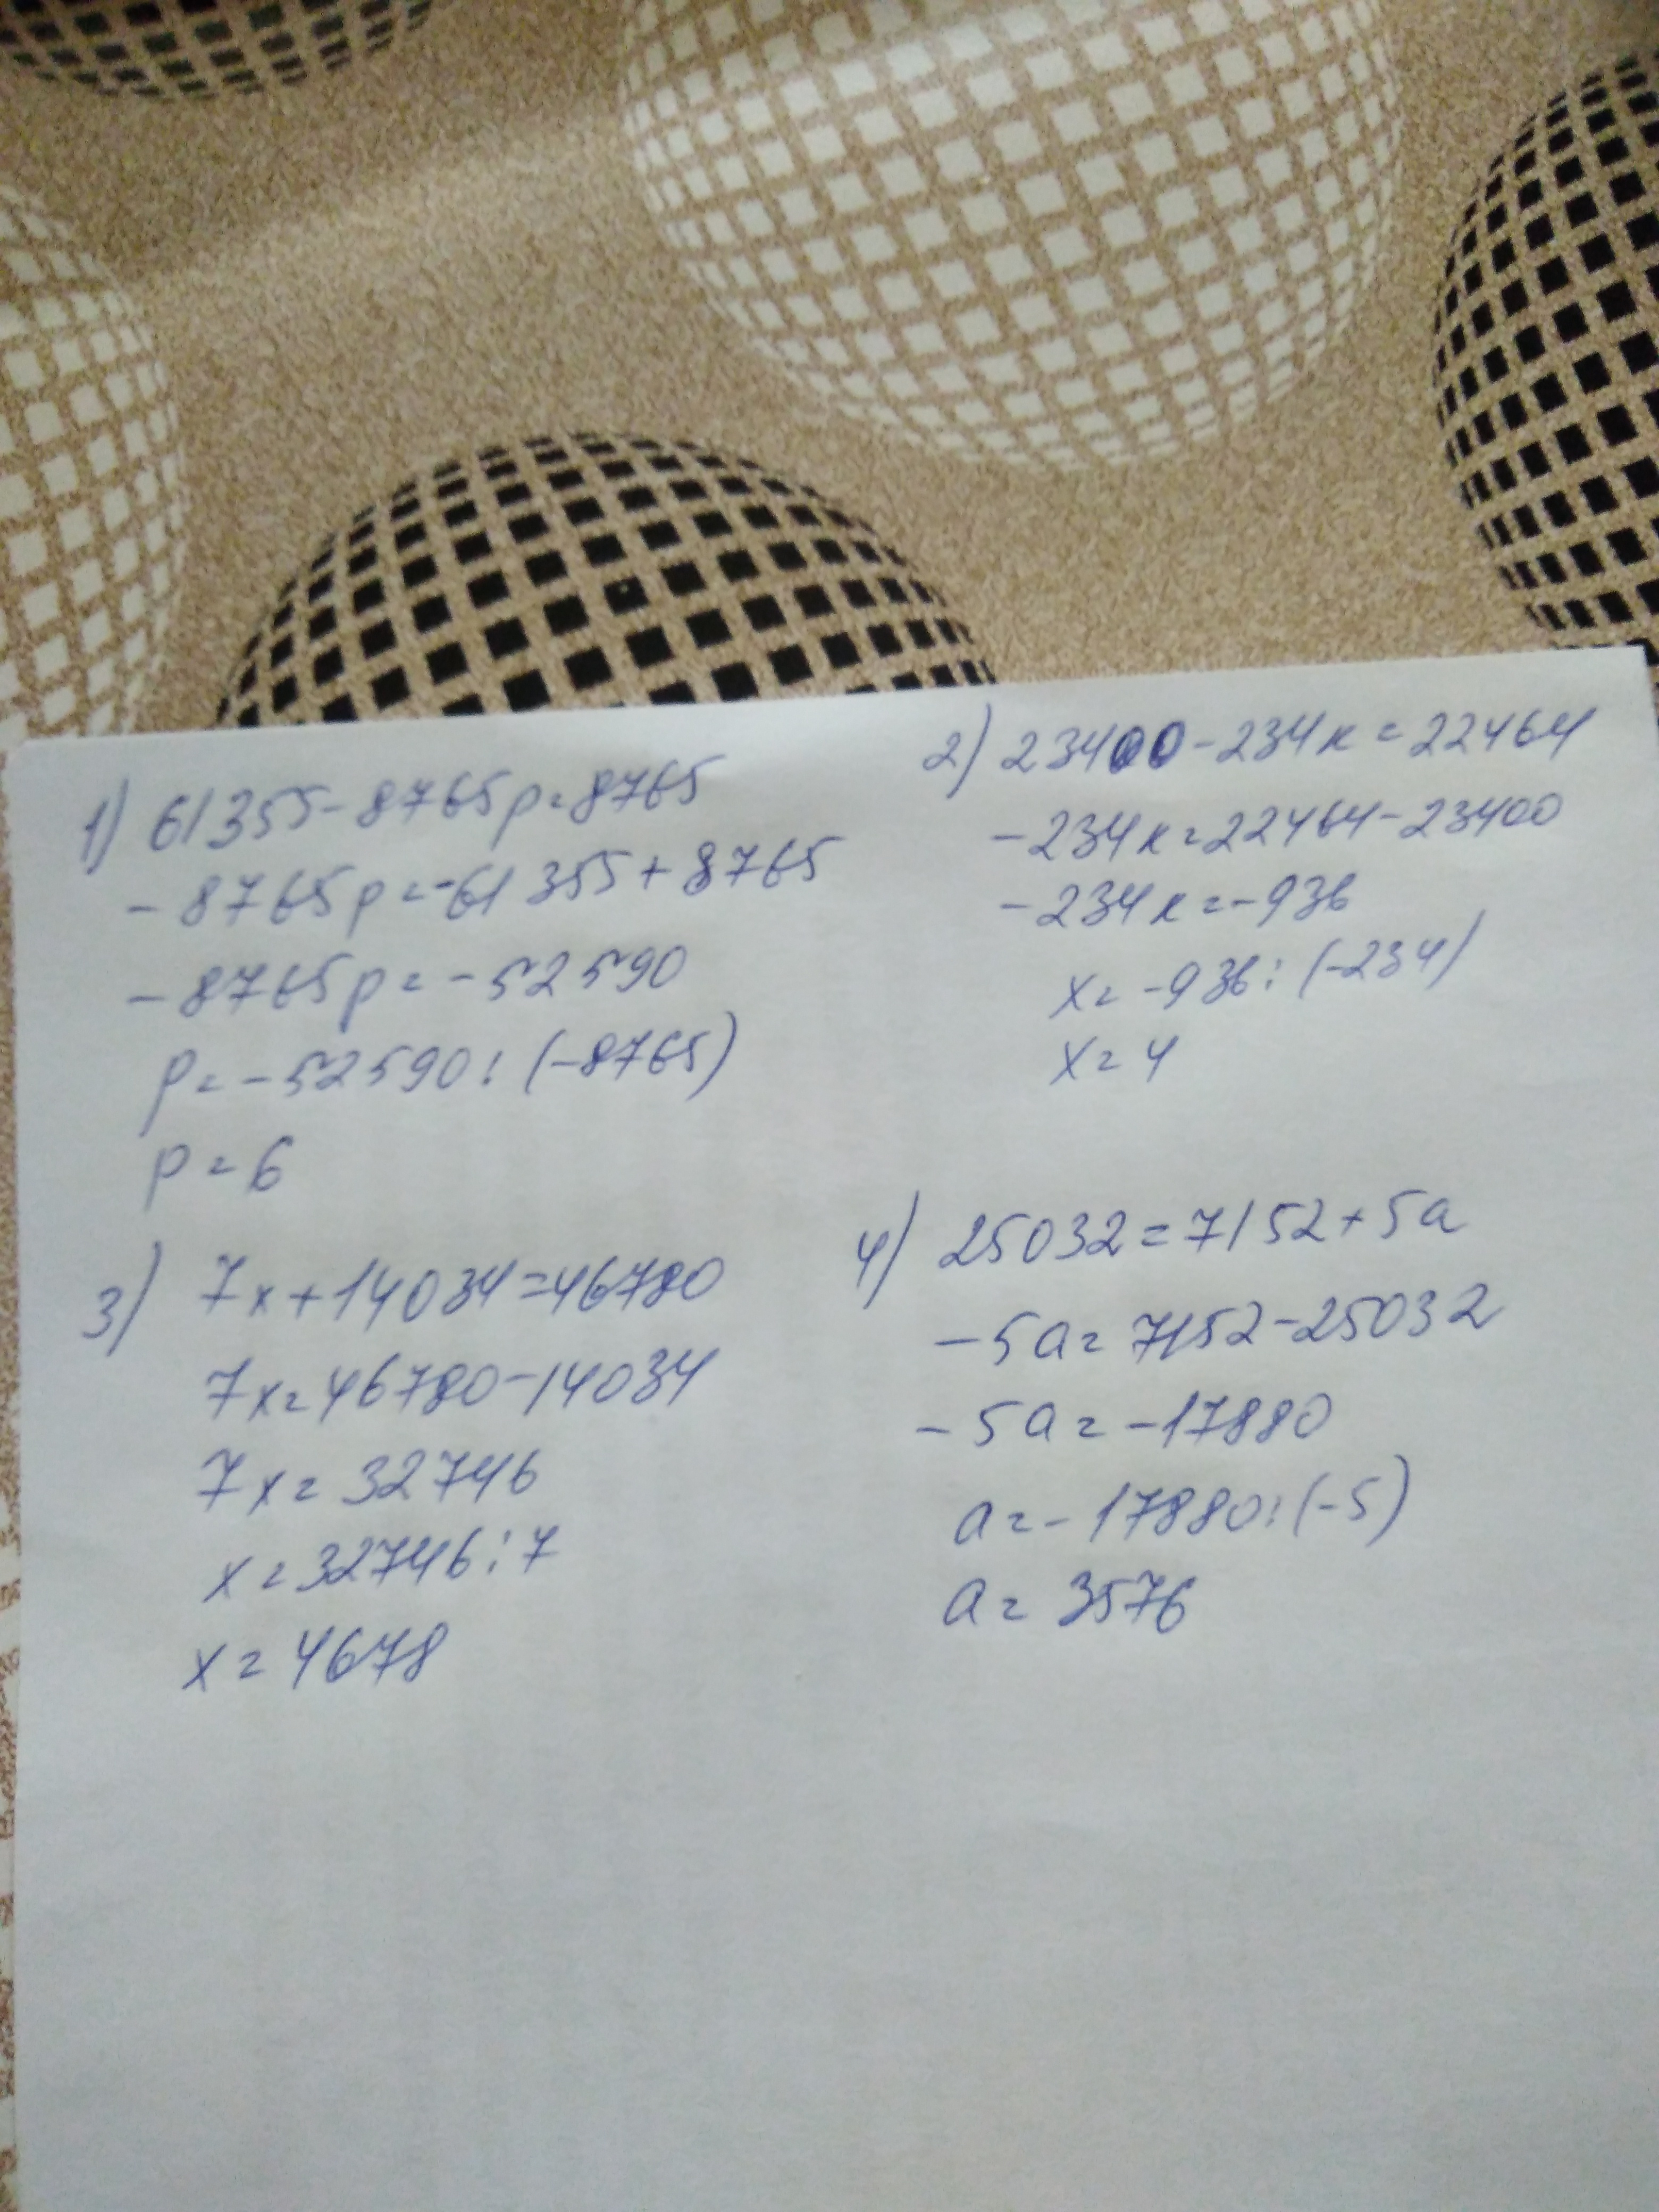 1) 61355-8765p=8765
-8765p=-61355+8765
-8765p=-52590
p=-52590:(-8765)
p=6
2) 23400-234к=22464
-234к=22464-23400
-234к=-936
x=-936:(-234)
x=4
3) 7x+14034=46780
7x=46780-14034
7x=32746
x=32746:7
x=4678
4) 25032=7152+5a
-5a=7152-25032
-5a=-17880
a=-17880:(-5)
a=3576